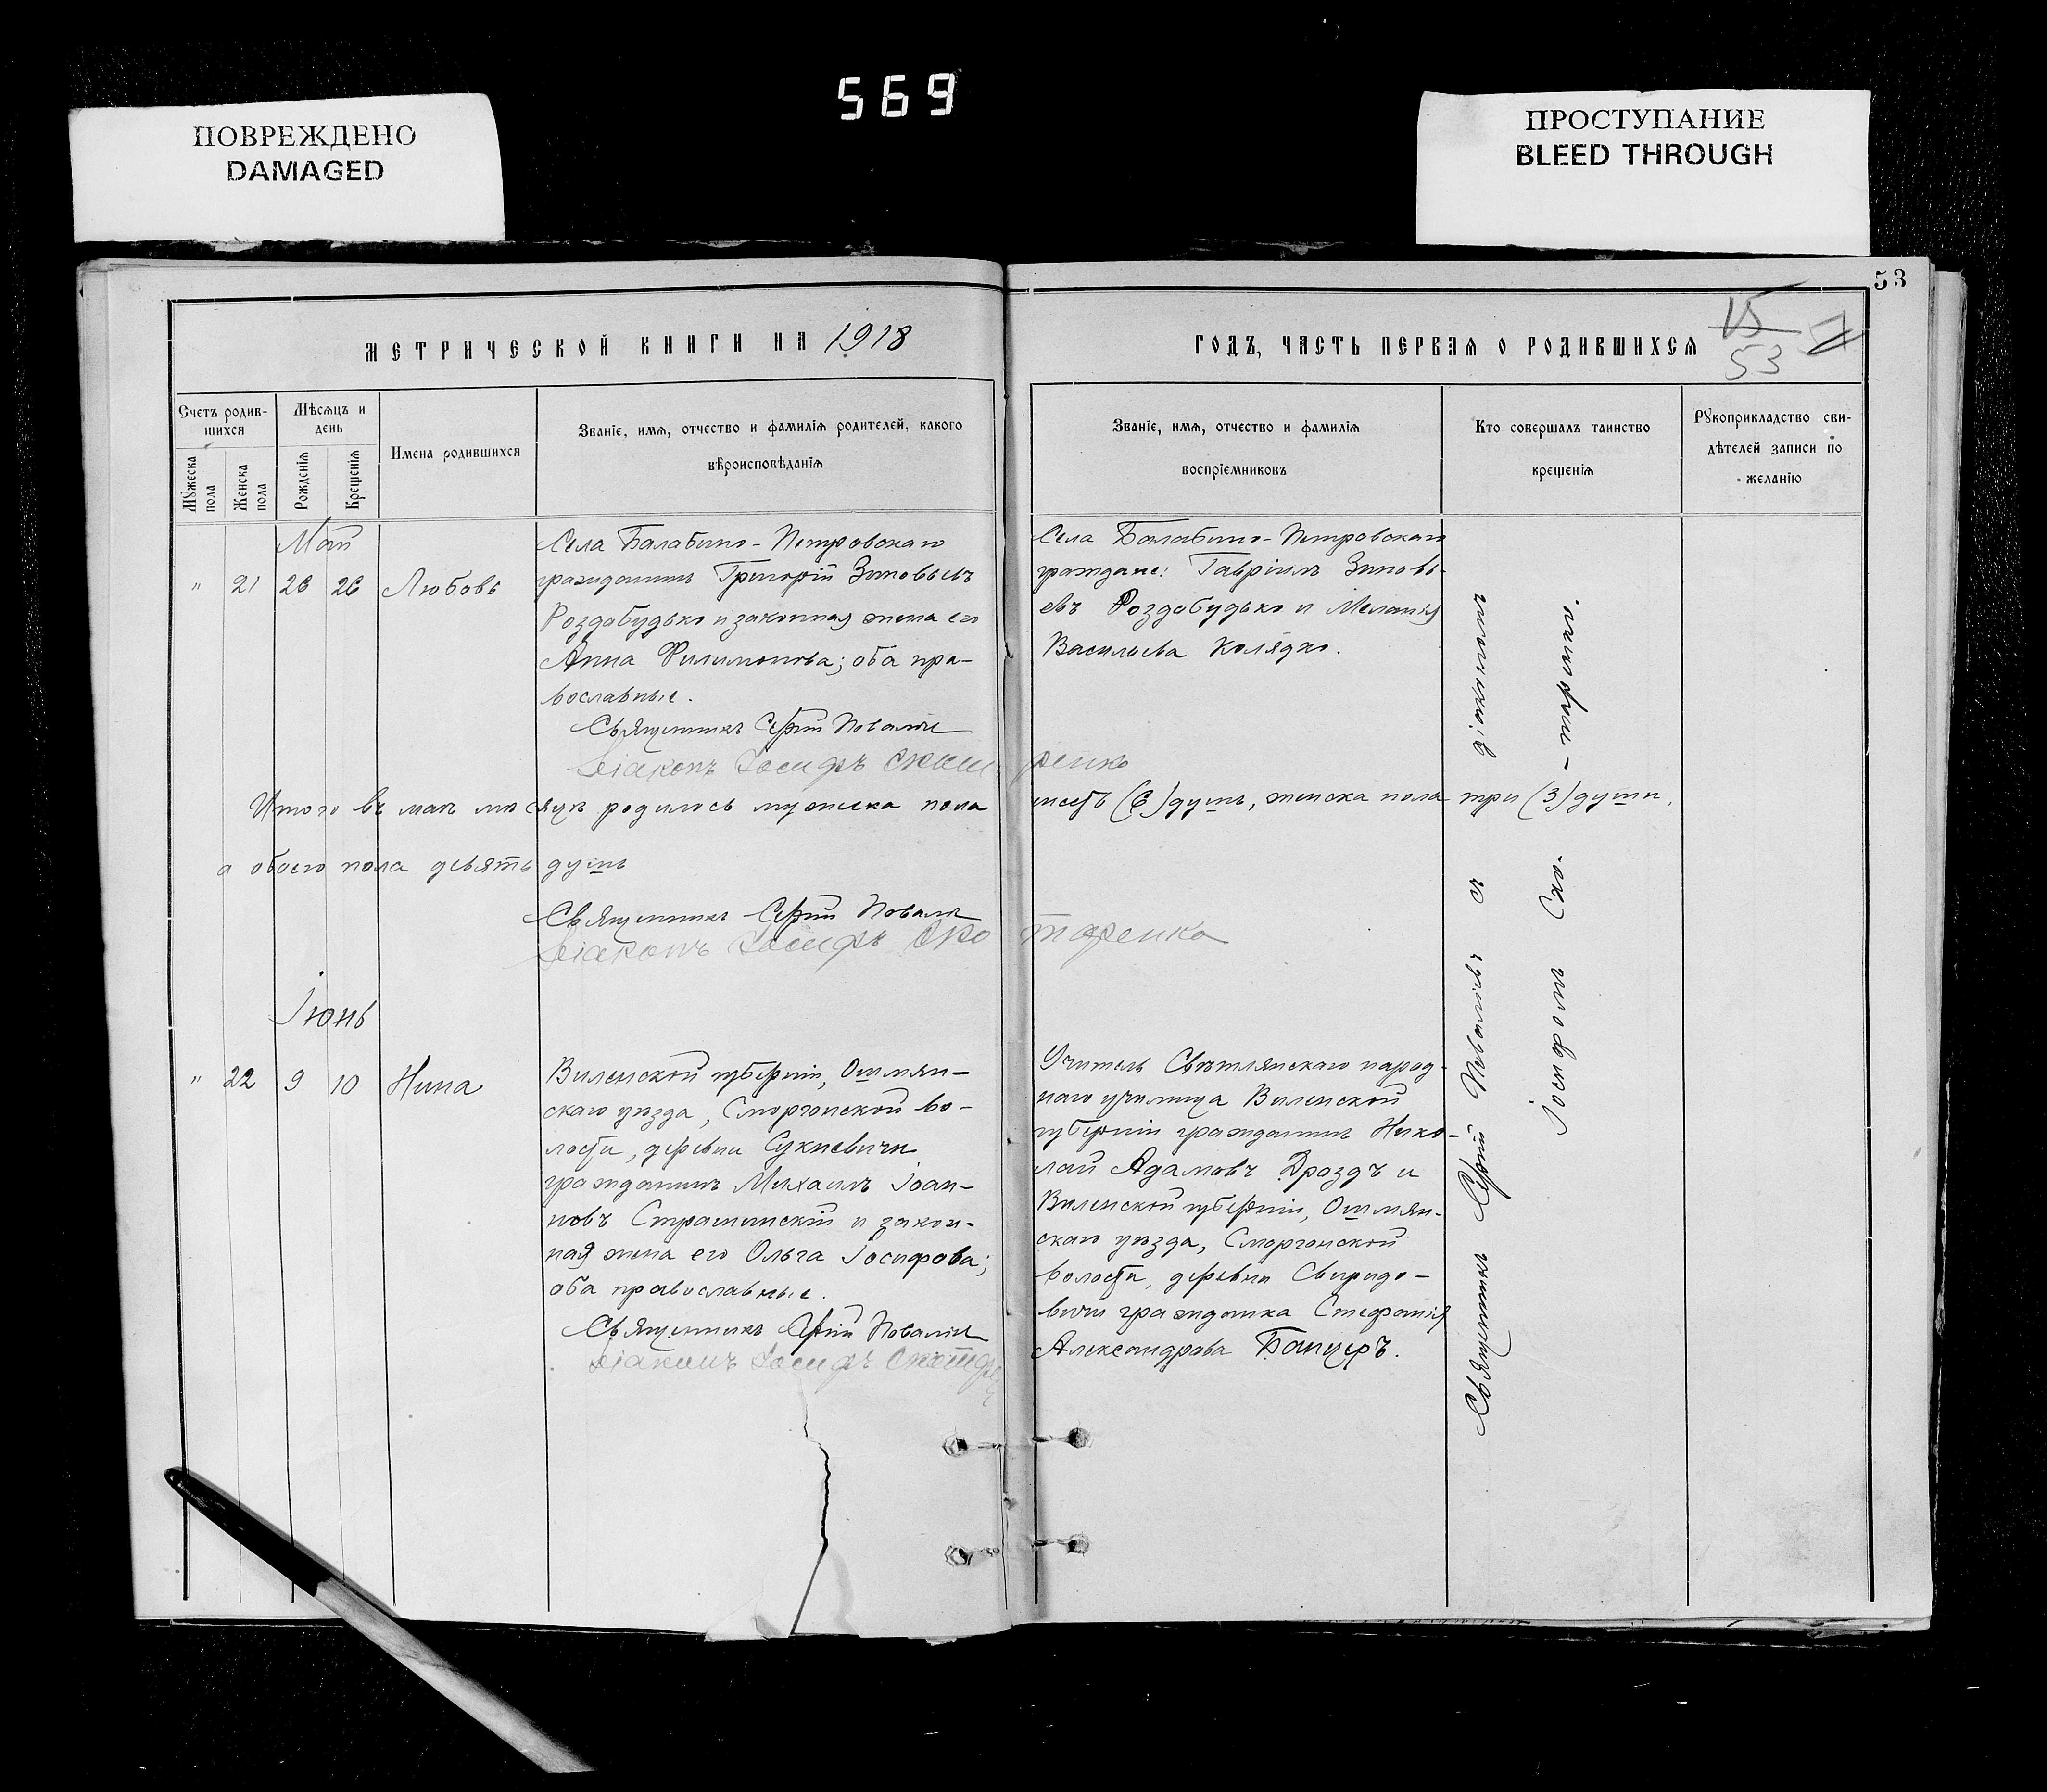 569
ПОВРЕЖДЕНО
DAMAGED
ПРОСТУПАНИЕ
BLEED THROUGH
53
МЕТРИЧЕСКОЙ КНИГИ НА 1918
ГОДЪ, ЧАСТЬ ПЕРВАЯ О РОДИВШИХСЯ
15
53
Счетъ родив-
шихся
Мѣсяцъ и
день
Мужеска
пола
Женска
пола
Рожденія
Крещенія
Имена родившихся
Званіе, имя, отчество и фамилія родителей, какого
вѣроисповѣданія
Званіе, имя, отчество и фамилія
воспріемниковъ
Кто совершалъ таинство
крещенія
Рукоприкладство сви-
дѣтелей записи по
желанію
Май
" 21 26 26 Любовь
Села Балабино-Петровскаго
гражданинъ Григорій Зиновьевъ
Роздабудько и законная жена его
Анна Филимонова; оба пра-
вославные.
Священникъ Сергій Поваліевъ
Діаконъ Іосифъ Скотаренко
Села Балабино-Петровскаго
граждане: Гавріилъ Зиновь-
евъ Роздобудько и Меланія
Васильева Колядко.
Итого въ маѣ мѣсяцѣ родилось мужеска пола шесть (6) душъ, женска пола три (3) души,
а обоего пола девять душъ
Священникъ Сергій Поваліевъ
Діаконъ Іосифъ Скотаренко
Іюнь
" 22 9 10 Нина
Виленской губерніи, Ошмян-
скаго уѣзда, Сморгонской во-
лости, деревни Сукневичи
гражданинъ Михаилъ Іоан-
новъ Страшинскій и закон-
ная жена его Ольга Іосифова;
оба православные.
Священникъ Сергій Поваліевъ
Діаконъ Іосифъ Скотаре
Учитель Свѣтлянскаго народ-
наго училища Виленской
губерніи гражданинъ Нико-
лай Адамовъ Дроздъ и
Виленской губерніи, Ошмян-
скаго уѣзда, Сморгонской
волости, деревни Свиридо-
вичи гражданка Стефанія
Александрова Банцеръ.
Священникъ Сергій Поваліевъ съ діакономъ
Іосифомъ Ско-
-таренко.